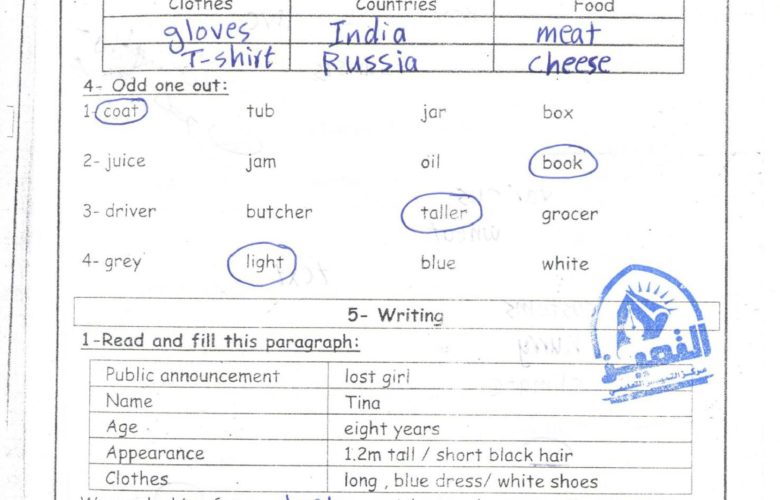 Clothes Countries Food
gloves India meat
T-shirt Russia cheese
4- Odd one out:
1- coat tub jar box
2- juice jam oil book
3- driver butcher taller grocer
4- grey light blue white
5- Writing
1-Read and fill this paragraph:
Public announcement lost girl
Name Tina
Age eight years
Appearance 1.2m tall / short black hair
Clothes long , blue dress/ white shoes
التميز